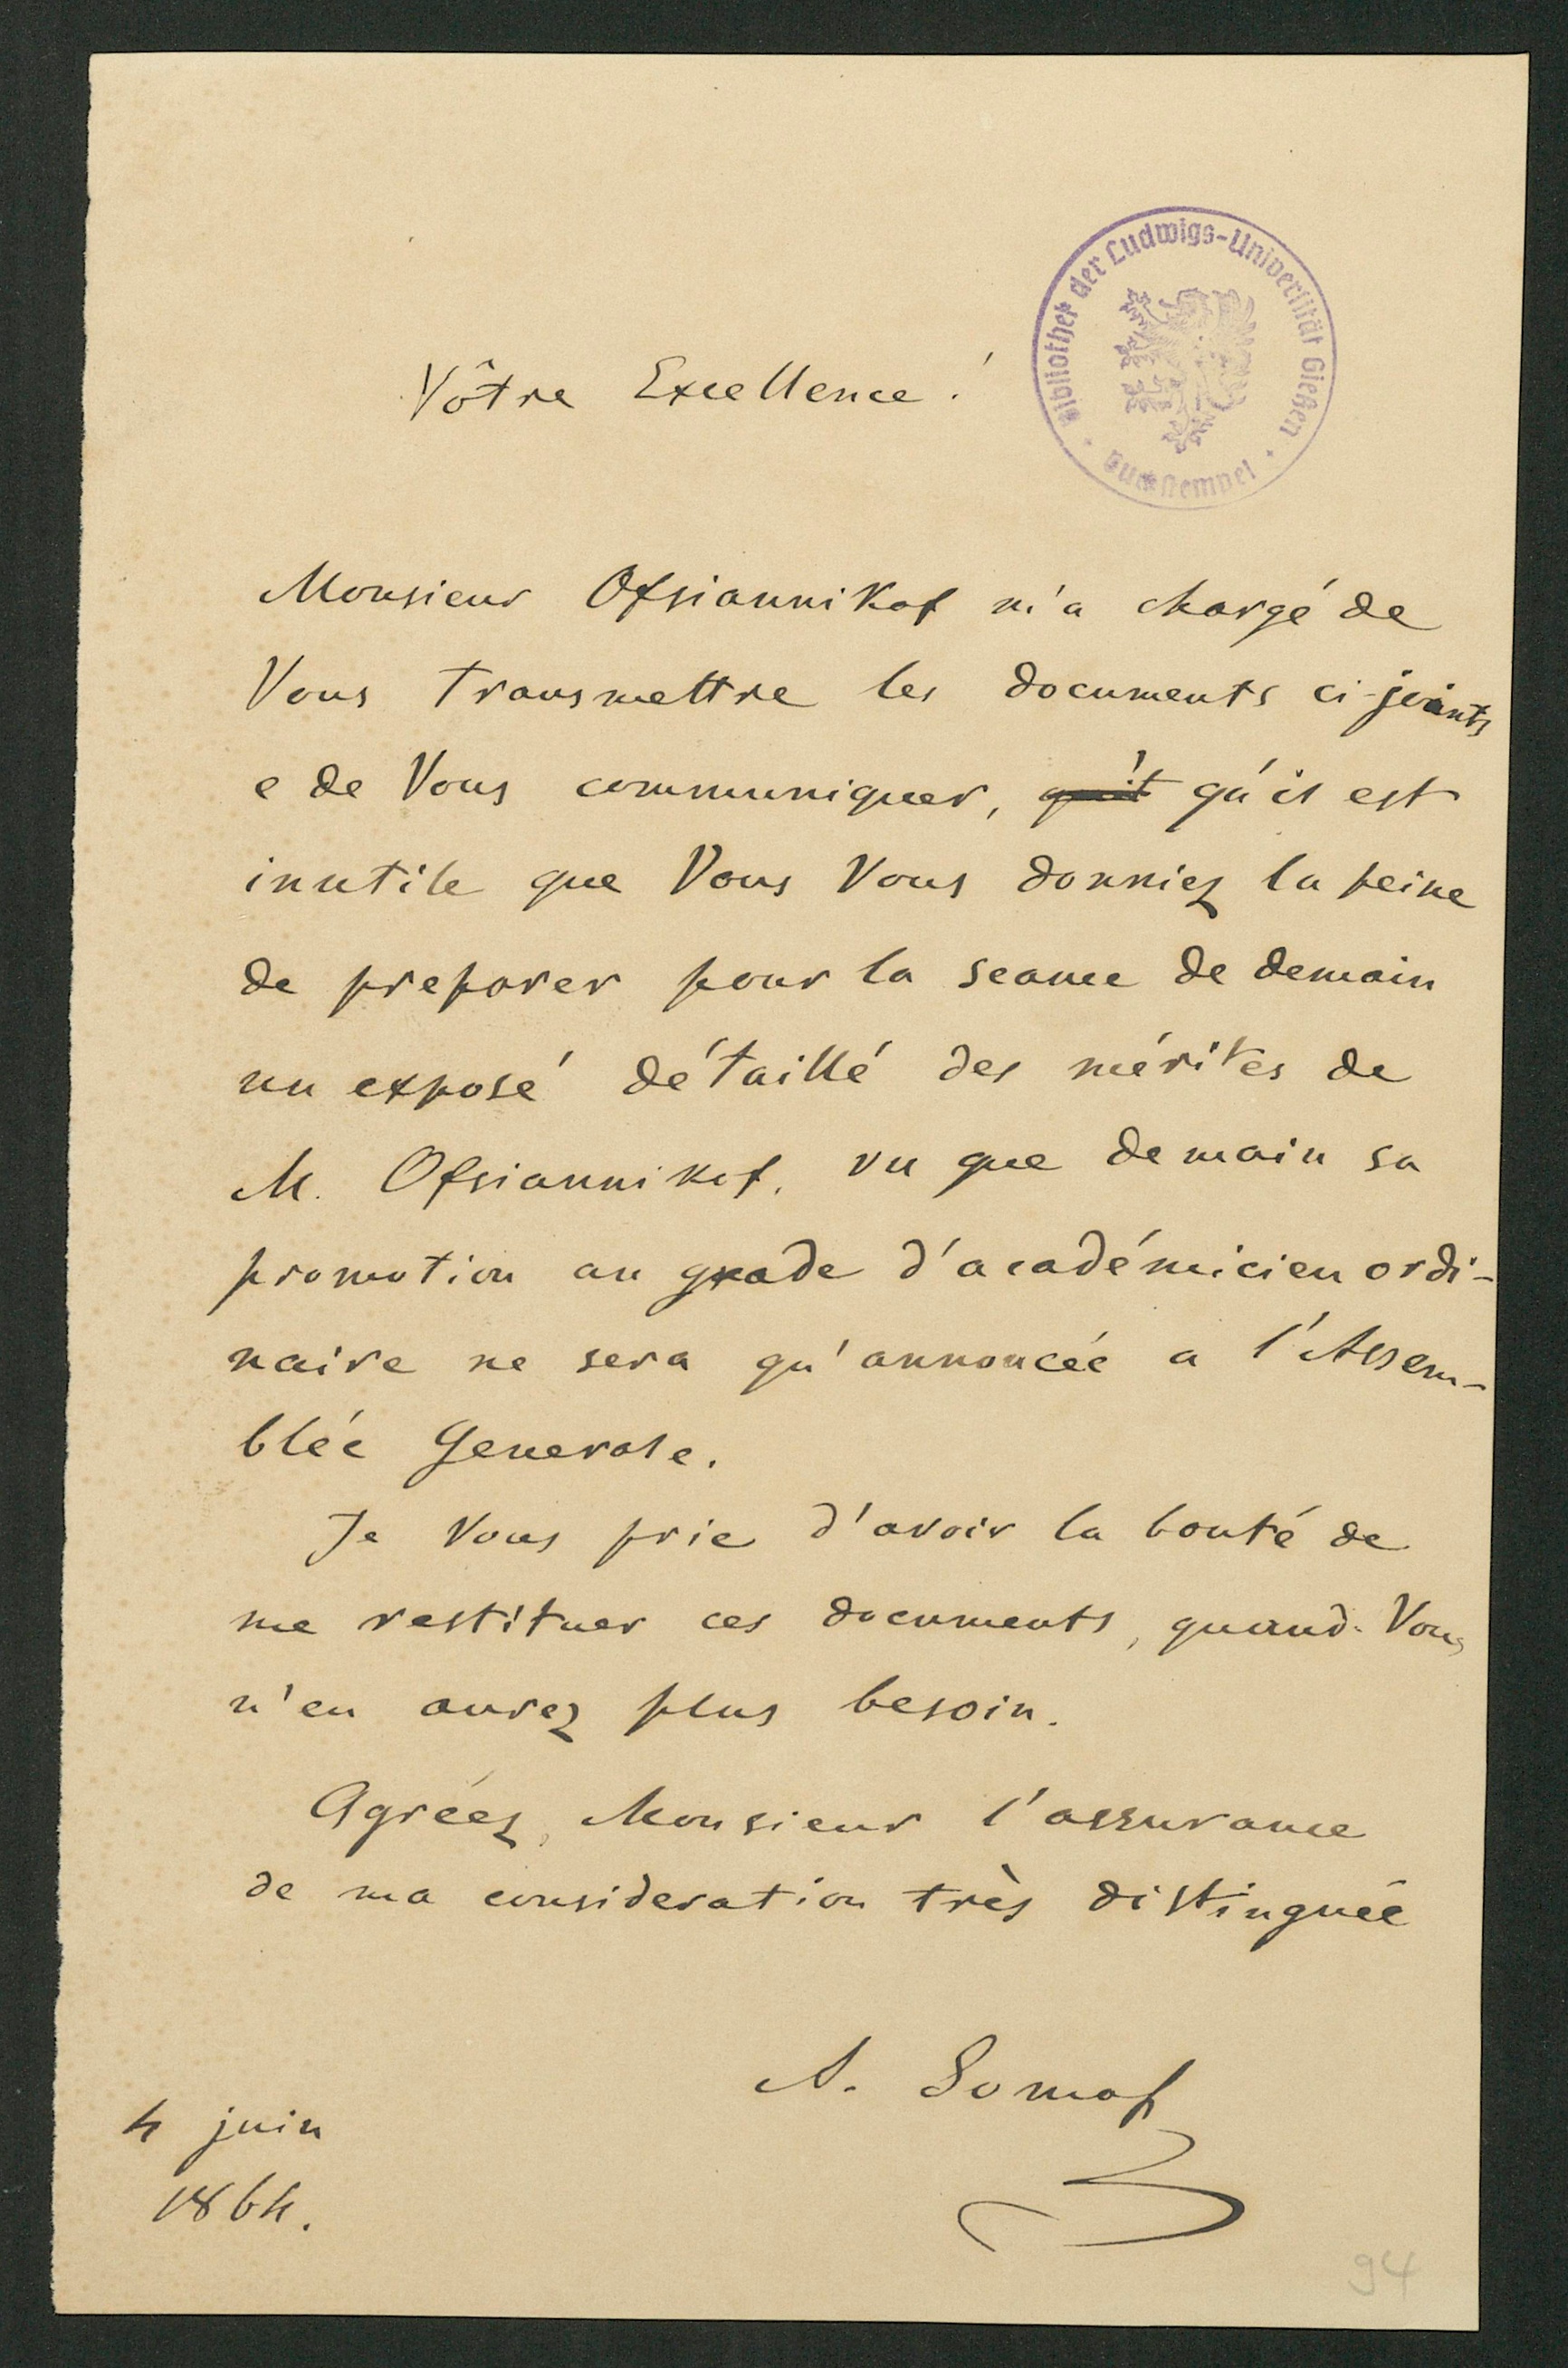 Vôtre Excellence!
Bibliothek der Ludwigs-Universität Gießen
Buchstempel
Monsieur Ofsiannikof m'a chargé de
Vous transmettre les documents ci-joints
e de Vous communiquer, qu'il qu'il est
inutile que Vous Vous donniez la peine
de preparer pour la seance de demain
un exposé détaillé des mérites de
M. Ofsiannikof, vu que demain sa
promotion au grade d'académicien ordi-
naire ne sera qu'annoncée a l'Assem-
blée Generale.
Je Vous prie d'avoir la bonté de
me restituer ces documents, quand Vous
n'en aurez plus besoin.
Agréez, Monsieur l'assurance
de ma consideration très distinguée
A. Somof
4 juin
1864.
94